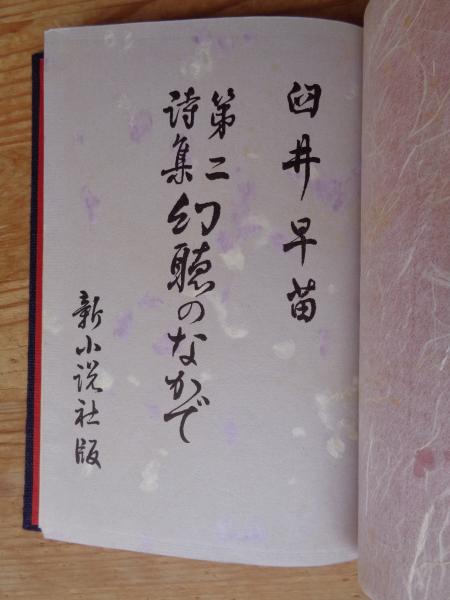 臼井早苗
第二
詩集
幻聴のなかで
新小説社版